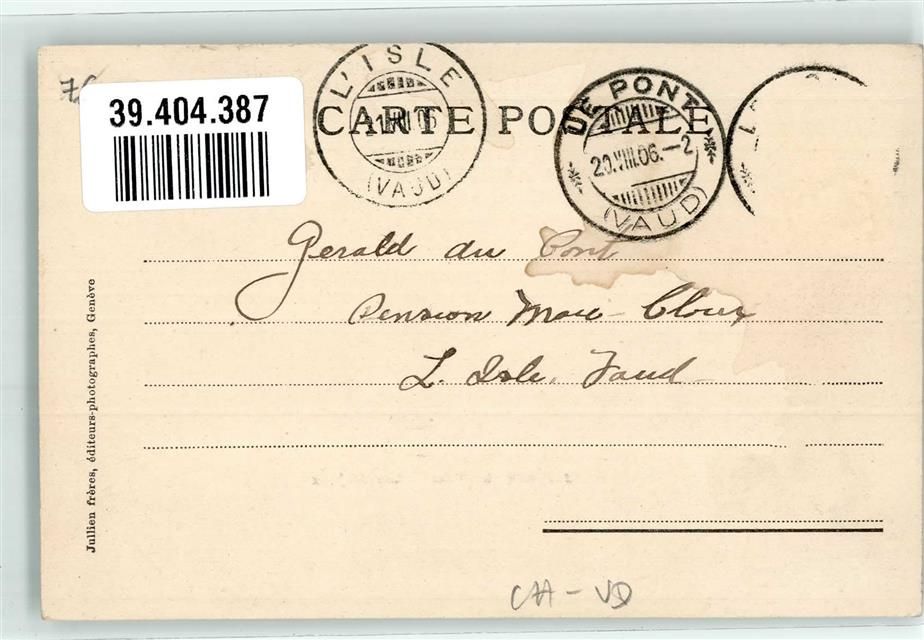 39.404.387
L'ISLE
(VAUD)
LE PONT
20.VIII.06.-2
(VAUD)
CARTE POSTALE
Gerald du Pont
Pension
L. Isle. Vaud
Jullien frères, éditeurs-photographes, Genève
CH - VD